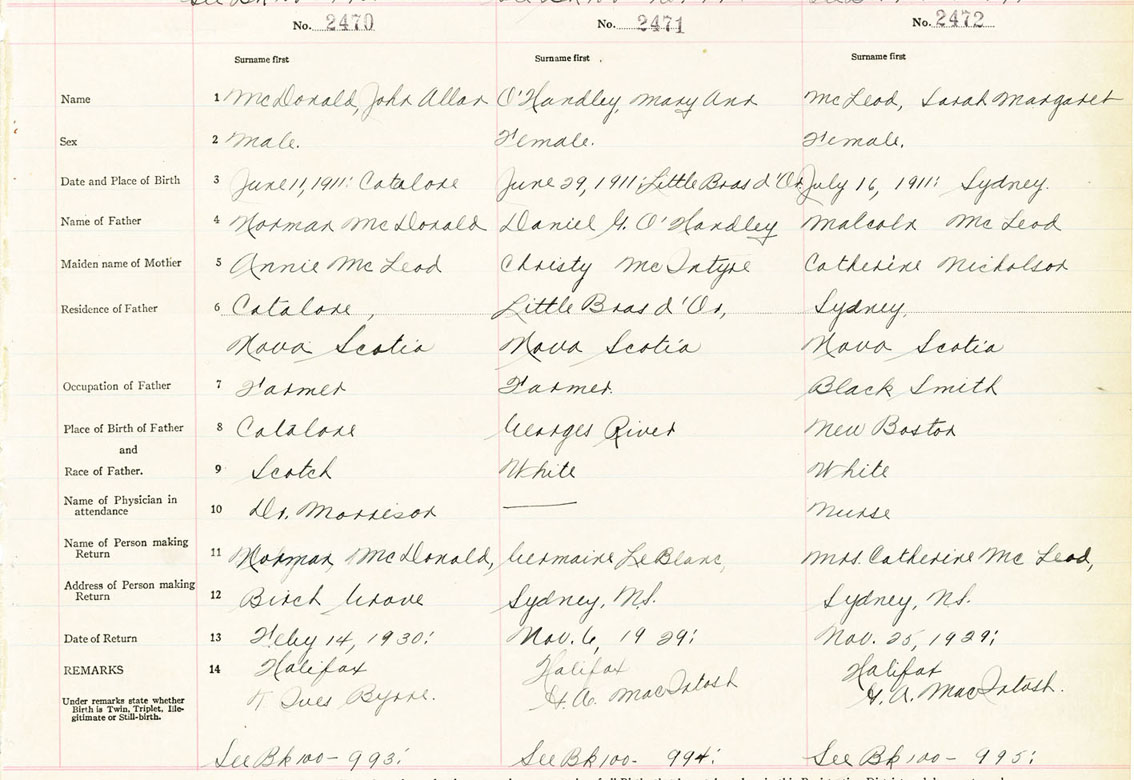 No. 2470 No. 2471 No. 2472
Surname first Surname first Surname first
Name 1 McDonald, John Allan O'Handley, Mary Ann McLeod, Sarah Margaret
Sex 2 Male. Female. Female.
Date and Place of Birth 3 June 11, 1911: Catalone June 29, 1911: Little Bras d'Or July 16, 1911: Sydney.
Name of Father 4 Norman McDonald Daniel G. O'Handley Malcolm McLeod
Maiden name of Mother 5 Annie McLeod Christy McIntyre Catherine Nicholson
Residence of Father 6 Catalone, Little Bras d'Or, Sydney,
Nova Scotia Nova Scotia Nova Scotia
Occupation of Father 7 Farmer Farmer. Black Smith
Place of Birth of Father 8 Catalone Georges River New Boston
and
Race of Father. 9 Scotch White White
Name of Physician in
attendance 10 Dr. Morrison — Nurse
Name of Person making
Return 11 Norman McDonald, Germaine LeBlanc, Mrs. Catherine McLeod,
Address of Person making
Return 12 Birch Grove Sydney, N.S. Sydney, N.S.
Date of Return 13 Feby 14, 1930: Nov. 6, 1929: Nov. 25, 1929:
REMARKS 14 Halifax Halifax Halifax
Under remarks state whether
Birth is Twin, Triplet, Ille-
gitimate or Still-birth.
Ives Byrne. MacIntosh H. A. MacIntosh.
See Bk 100 - 993: See Bk 100 - 994: See Bk 100 - 995: